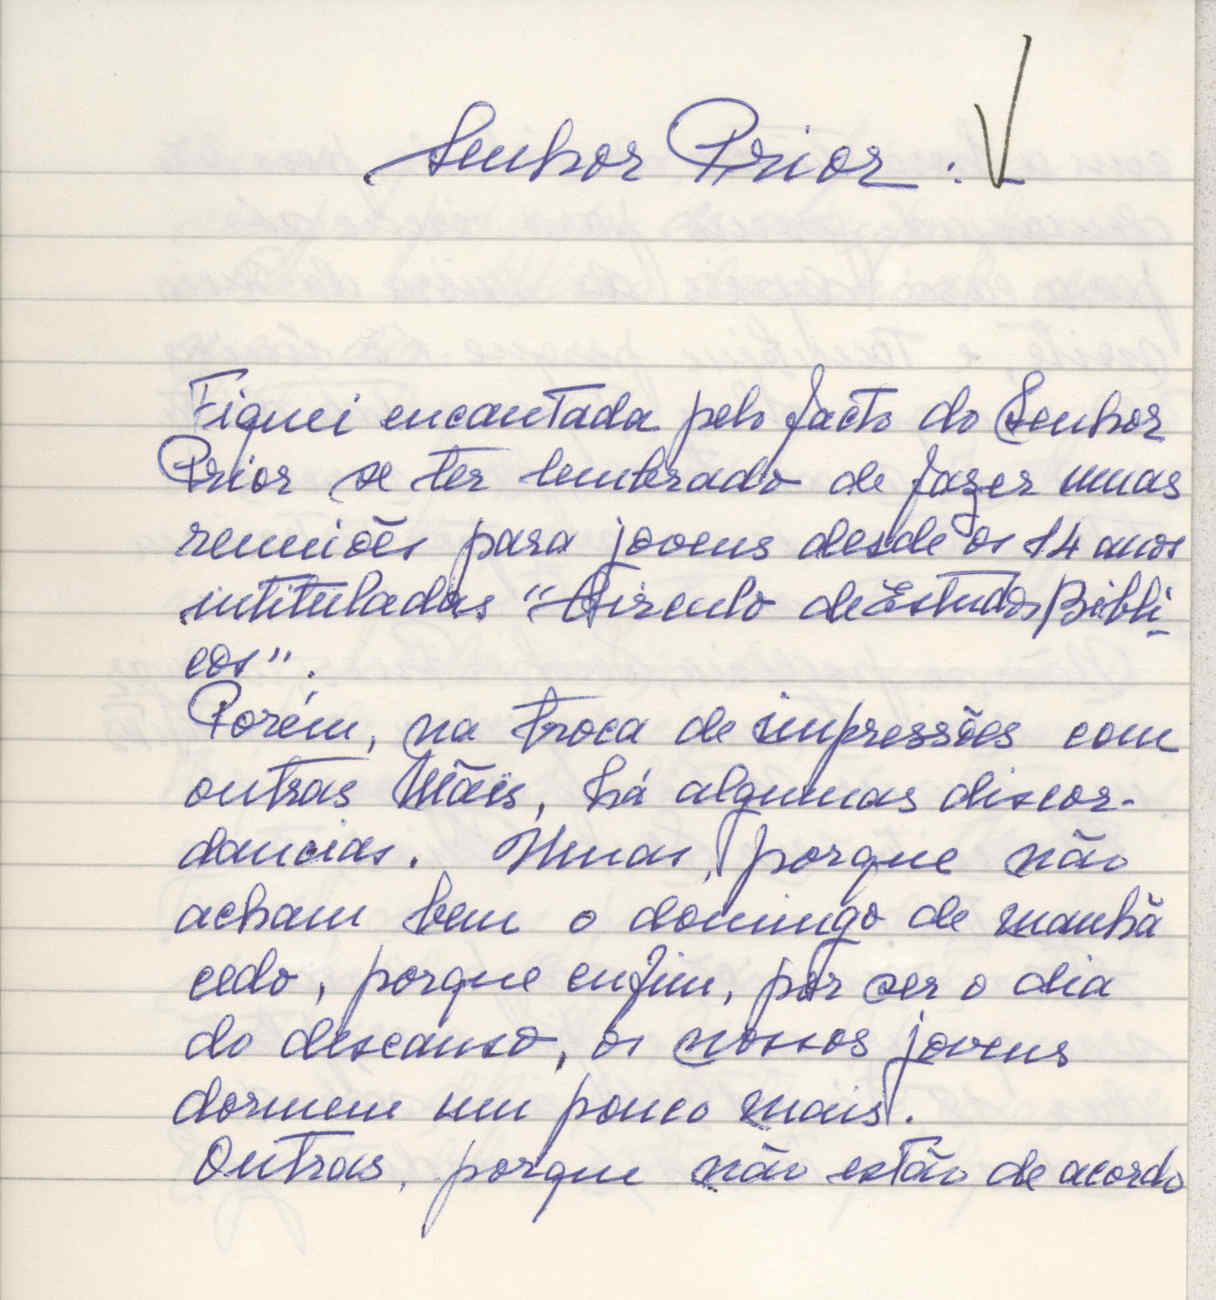 Senhor Prior:
Fiquei encantada pelo facto do Senhor
Prior se ter lembrado de fazer umas
reuniões para jovens desde os 14 anos
intituladas "Circulo de Estudos Bibli-
cos".
Porém, na troca de impressões com
outras Mães, há algumas discor-
dancias. Umas, porque não
acham bem o domingo de manhã
cedo, porque enfim, por ser o dia
do descanso, os nossos jovens
dormem um pouco mais.
Outras, porque não estão de acordo